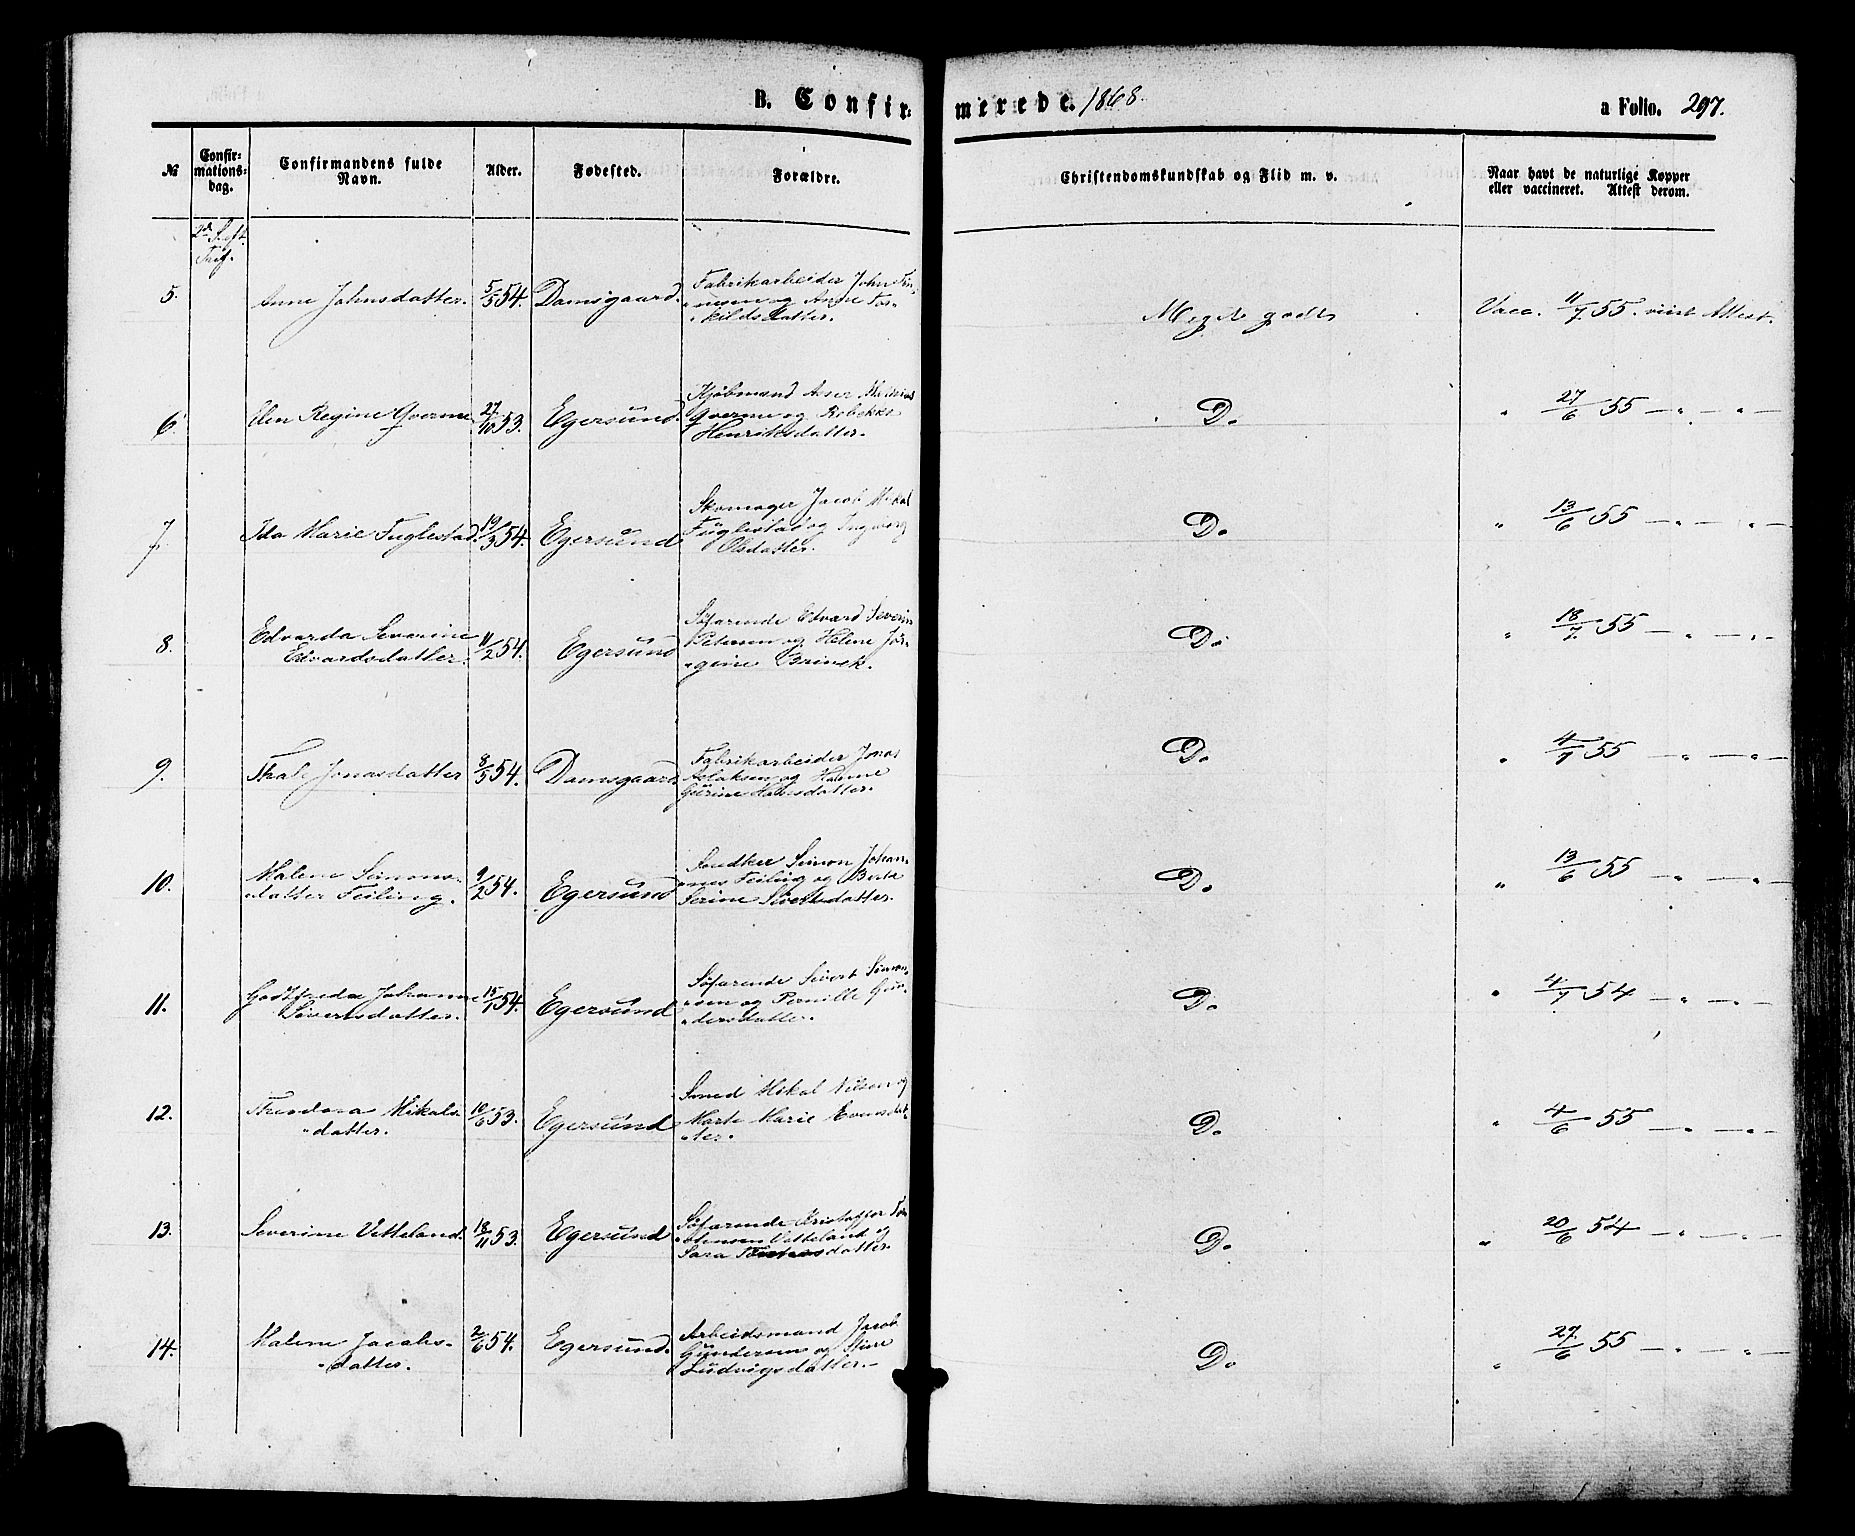 B. Confirmerede. 1868.
a Folio. 297.
№ Confirmationsdag. Confirmandens fulde Navn. Alder. Fødested. Forældre. Christendomskundskab og Flid m. v. Naar havt de naturlige Kopper eller vaccineret. Attest derom.
5. Anne Johnsdatter. 5/5 54. Damsgaard. Fabrikarbeider John
og Anne
kildsdatter. Meget godt Vacc. 11/7 55. viist Attest.
6. Elen Regine Gverne 27/10 53. Egersund. Kjøbmand
Gverne og Rebekka
Henriksdatter. Do " 27/6 55 — " — " —
7. Ida Marie Fuglestad. 19/3 54. Egersund Skomager Jacob Mikal
Fuglestad og Ingeborg
Olsdatter. Do " 13/6 55 — " — " —
8. Edvarda Severine
Edvardsdatter. 11/2 54. Egersund Søfarende Edvard Severin
Petersen og Helene Jør-
gine Do " 18/7 55 — " — " —
9. Thale Jonasdatter 8/5 54. Damsgaard. Fabrikarbeider Jonas
Aslaksen og
Gurine Do " 4/7 55 — " — " —
10. Malene Simons-
datter Feiling. 9/2 54. Egersund Simon Johan-
nes Feiling og Berte
Serine Sivertsdatter. Do " 13/6 55 — " — " —
11. Godtfreda Johanne
Siversdatter. 15/1 54. Egersund Søfarende Sivert Simon-
sen og Pernille Gun-
dersdatter. Do " 4/7 54 — " — " —
12. Theodora Mikals-
datter. 10/6 53. Egersund Smed Mikal Nilsen og
Marte Marie Evensdat-
ter. Do " 4/6 55 — " — " —
13. Severine Vetteland. 18/11 53. Egersund Søfarende Kristoffer
Vetteland og
Sara Do " 20/6 54 — " — " —
14. Malene Jacobs-
datter. 2/6 54. Egersund. Arbeidsmand Jacob
Gundersen og Stine
Ludvigsdatter. Do " 27/6 55 — " — " —